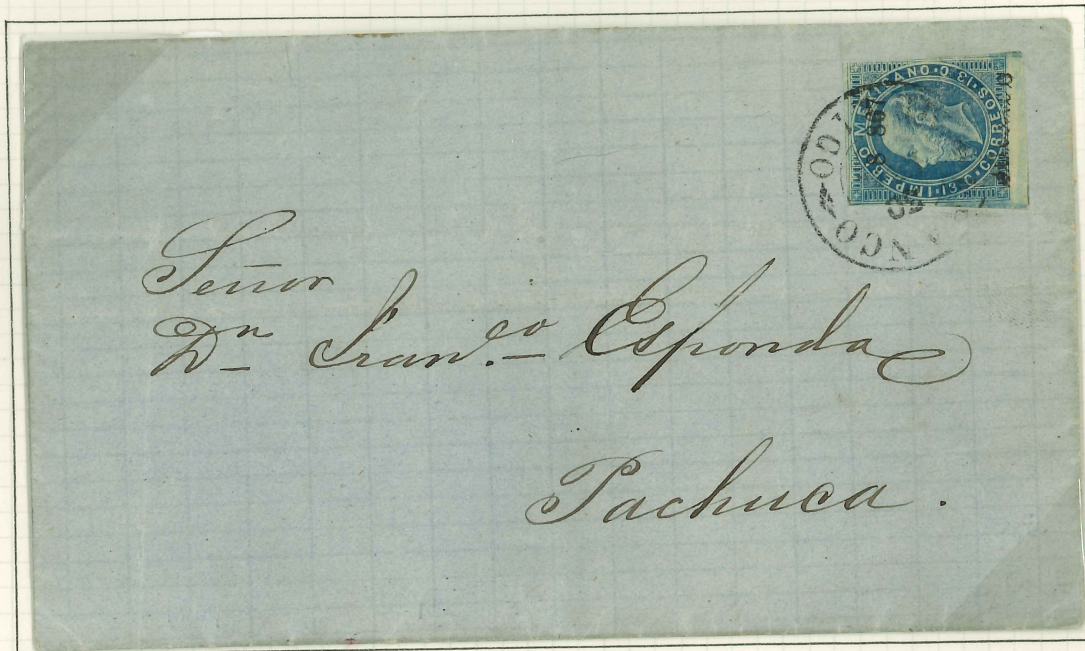 IMPERIO MEXICANO · 13 C. · CORREOS · 13 C. ·
Señor
Dn Franco Esponda
Pachuca.